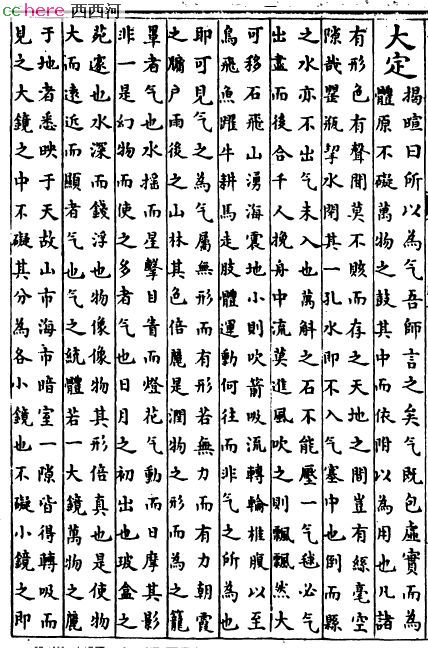 cchere 西西河
大定
揭暄曰所以為气吾師言之矣气既包虛實而為
體原不礙萬物之鼓其中而依附以為用也凡諸
有形色有聲聞莫不賅而存之天地之間豈有絲毫空
隙哉罌瓶挈水閉其一孔水即不入气塞中也倒而縣
之水亦不出气未入也萬斛之石不能壓一气毬必气
出盡而後合千人挽舟中流莫進風吹之則飄飄然大
可移石飛山湧海震地小則吹箭吸流轉輪椎腹以至
鳥飛魚躍牛耕馬走肢體運動何往而非气之所為也
即可見气之為气屬無形而有形若無力而有力朝霞
之牖戶雨後之山林其色倍麗是潤物之形而為之籠
罩者气也水搖而星擊目眚而燈花气動而日摩其影
非一是幻物而使之多者气也日月之初出也玻盒之
蒞遠也水深而錢浮也物像像物其形倍真也是使物
大而遠近而顯者气也气之統體若一大鏡萬物之麗
于地者悉映于天故山市海市暗室一隙皆得轉吸而
見之大鏡之中不礙其分為各小鏡也不礙小鏡之即